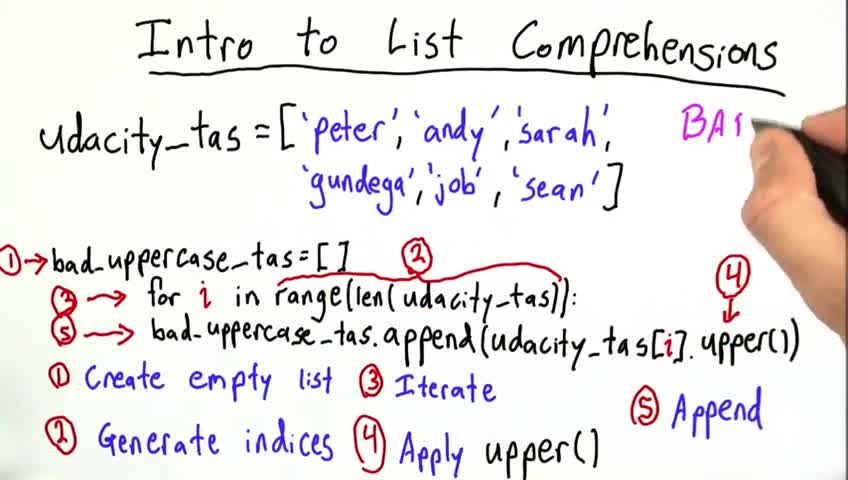 Intro to List Comprehensions
udacity_tas = ['peter', 'andy', 'sarah',
'gundega', 'job', 'sean']
BA
① → bad_uppercase_tas = [] ②
③ → for i in range(len(udacity_tas)): ④
⑤ → bad_uppercase_tas.append(udacity_tas[i].upper())
① Create empty list ③ Iterate
② Generate indices ④ Apply upper()
⑤ Append